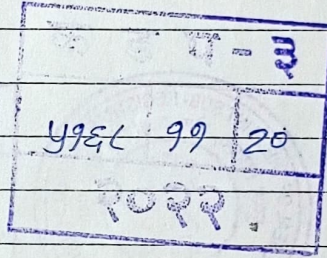 क ह प - ३
५१६८ ११ 20
२०२२